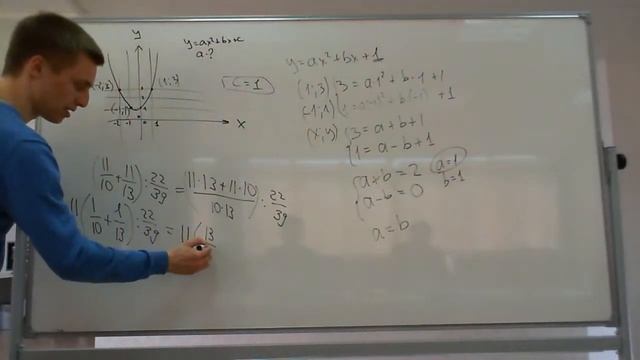 y
y=ax²+bx+c
a-?
(-2;3)
(1;3)
(-1;1)
-2 -1
1
x
c=1
y=ax²+bx+1
(1;3) 3=a·1²+b·1+1
(-1;1) +b·(-1) +1
(x;y) 3=a+b+1
1=a-b+1
a+b=2 a=1
a-b=0 b=1
a=b
(11/10+11/13):22/39=(11·13+11·10)/(10·13):22/39
11(1/10+1/13):22/39=11(13